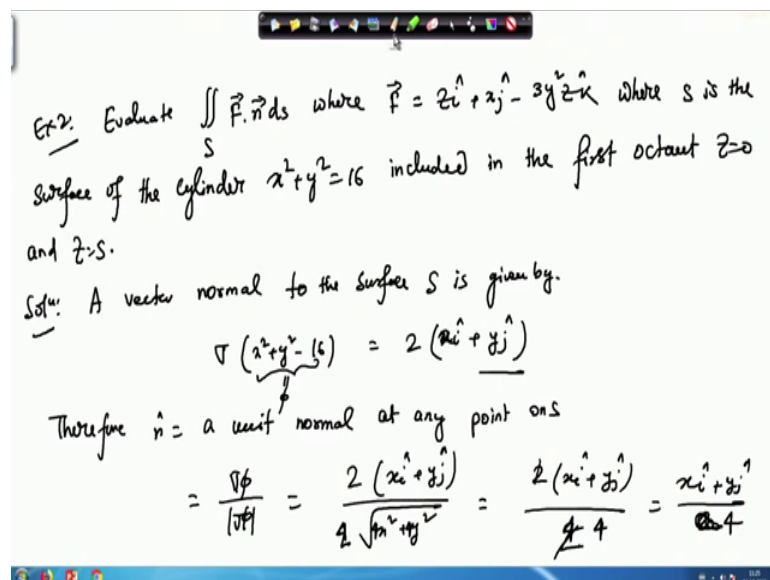 Ex 2: Evaluate ∬_S F⃗.n⃗ ds where F⃗ = zî + xĵ - 3y²zk̂ where S is the
surface of the cylinder x²+y²=16 included in the first octant z=0
and z=5.
Solu: A vector normal to the surface S is given by.
∇(x²+y²-16) = 2(xî + yĵ)
φ
Therefore n̂ = a unit normal at any point on S
= ∇φ/|∇φ| = 2(xî+yĵ)/√(4x²+4y²) = 2(xî+yĵ)/(2 4) = (xî+yĵ)/4
11:25